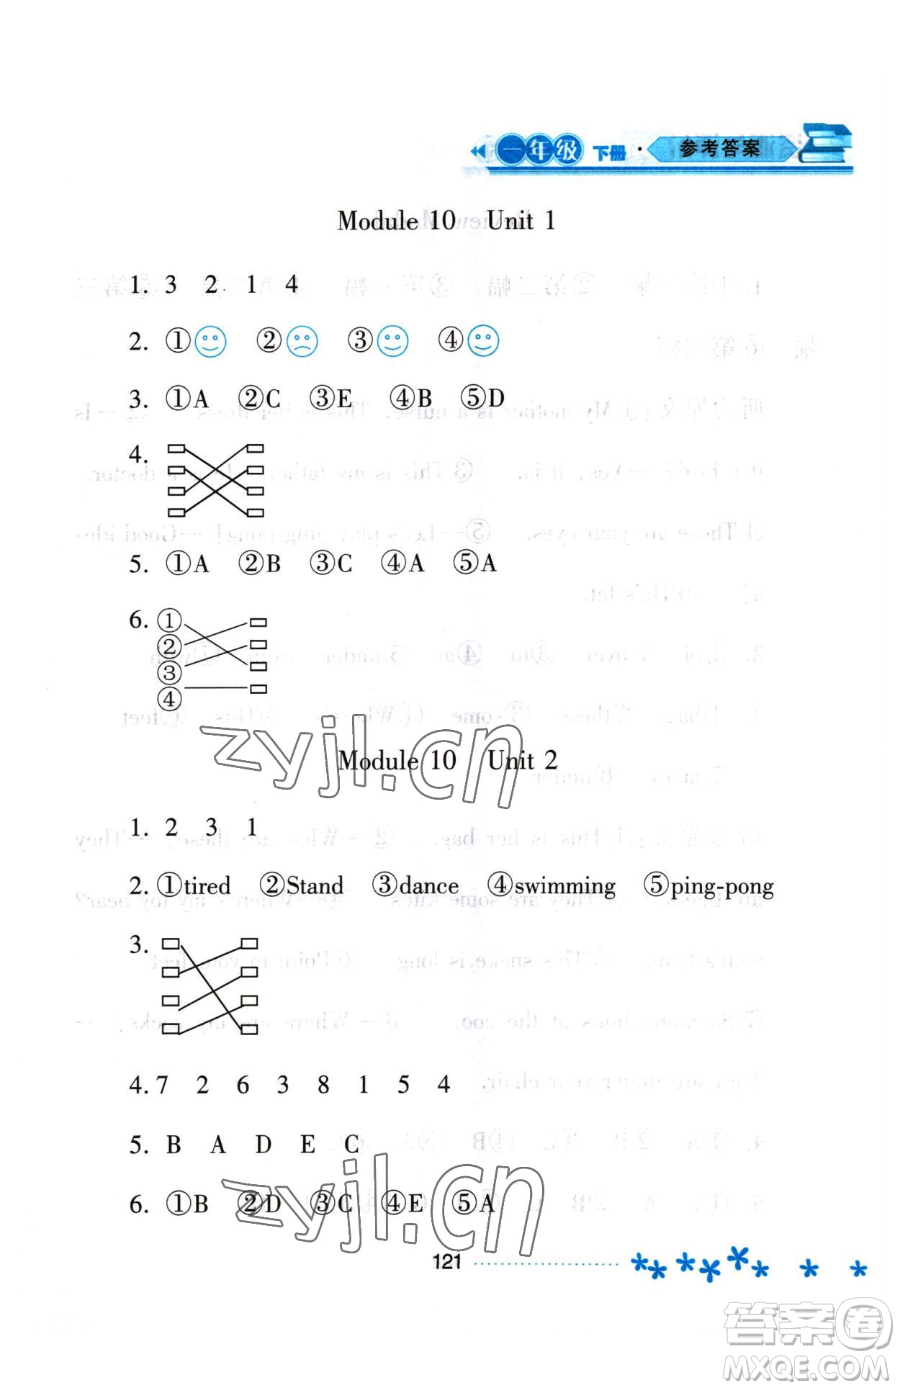 一年级 下册 · 参考答案
Module 10 Unit 1
1. 3 2 1 4
2. ① ② ③ ④
3. ①A ②C ③E ④B ⑤D
4.
5. ①A ②B ③C ④A ⑤A
6. ①
②
③
④
zyjl.cn
Module 10 Unit 2
1. 2 3 1
2. ①tired ②Stand ③dance ④swimming ⑤ping-pong
3.
4. 7 2 6 3 8 1 5 4
5. B A D E C
6. ①B ②D ③C ④E ⑤A
zyjl.cn
121
答案圈
MXQE.COM